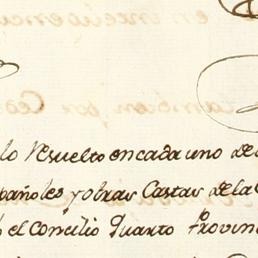 lo resuelto en cada uno de
pañoles y otras Castas de la
el Concilio Quarto Provin